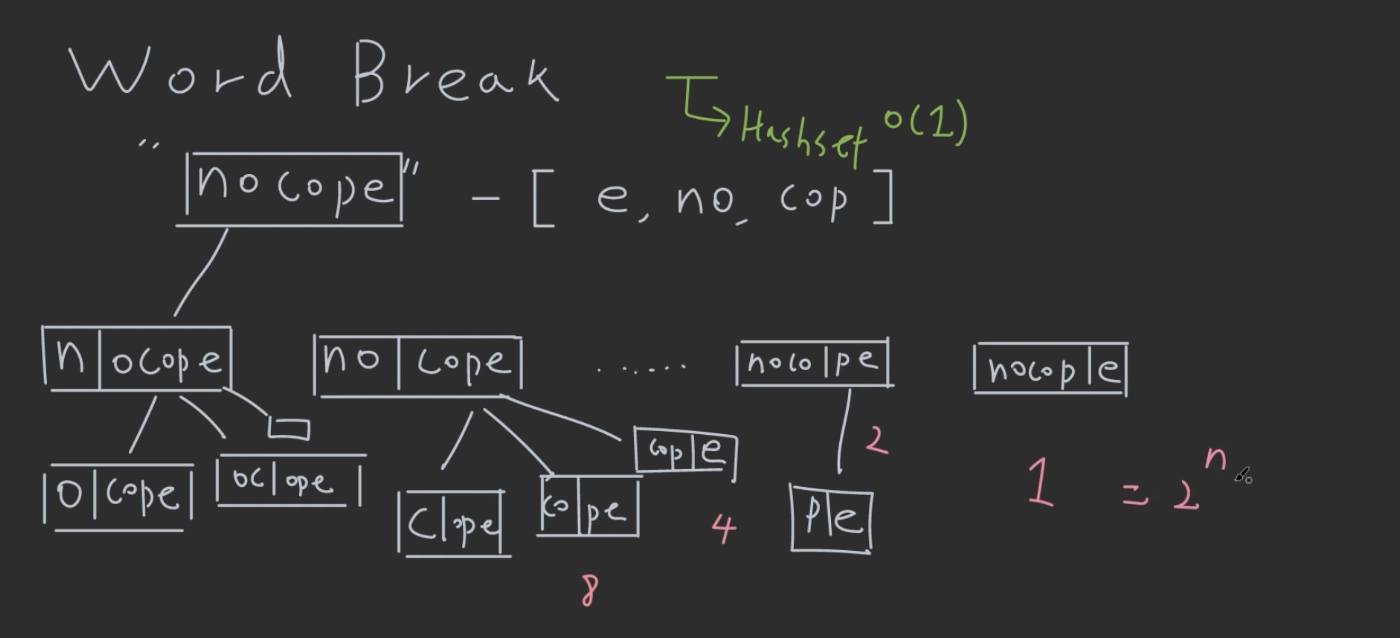 Word Break
Hashset O(1)
"nocope" - [ e, no, cop ]
n|ocope
no|cope
......
noco|pe
nocop|e
o|cope
oc|ope
c|ope
co|pe
cop|e
p|e
8
4
2
1 = 2^n